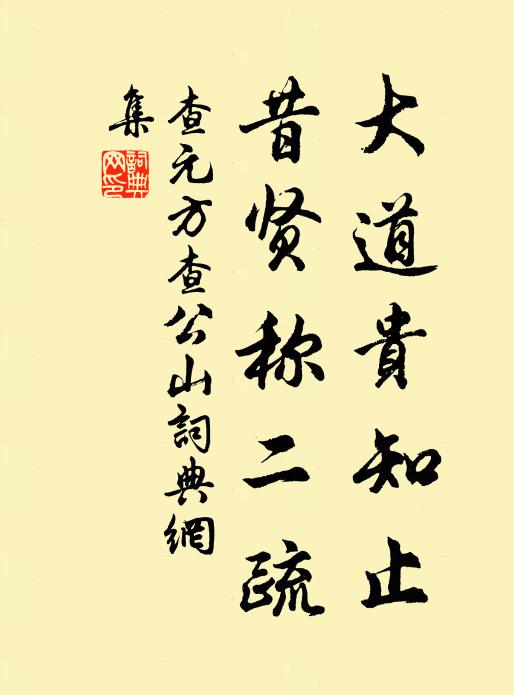 大道貴知止
昔贤称二疏
查元方查公山詞典網
集
詞典
网印